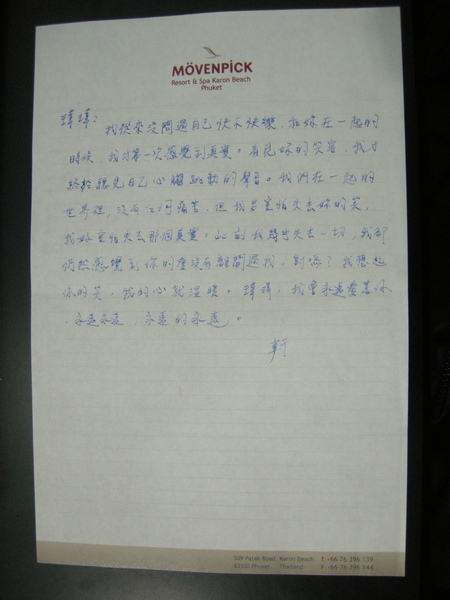 MÖVENPICK
Resort & Spa Karon Beach
Phuket
瑋瑋：
我從來沒問過自己快不快樂，和妳在一起的
時候，我才第一次感覺到真實。看見妳的笑容，我才
終於聽見自己心臟跳動的聲音。我們在一起的
世界裡，沒有任何痛苦，但我好害怕失去妳的笑，
我好害怕失去那個真實。此刻我幾乎失去一切，我卻
仍然感覺到你的愛沒有離開過我，別傷了我想起
你的笑，我的心就溫暖。瑋瑋，我會永遠愛著你
，永遠永遠，永遠的永遠。
軒
509 Patak Road, Karon Beach T +66 76 396 139
83100 Phuket Thailand F +66 76 396 144